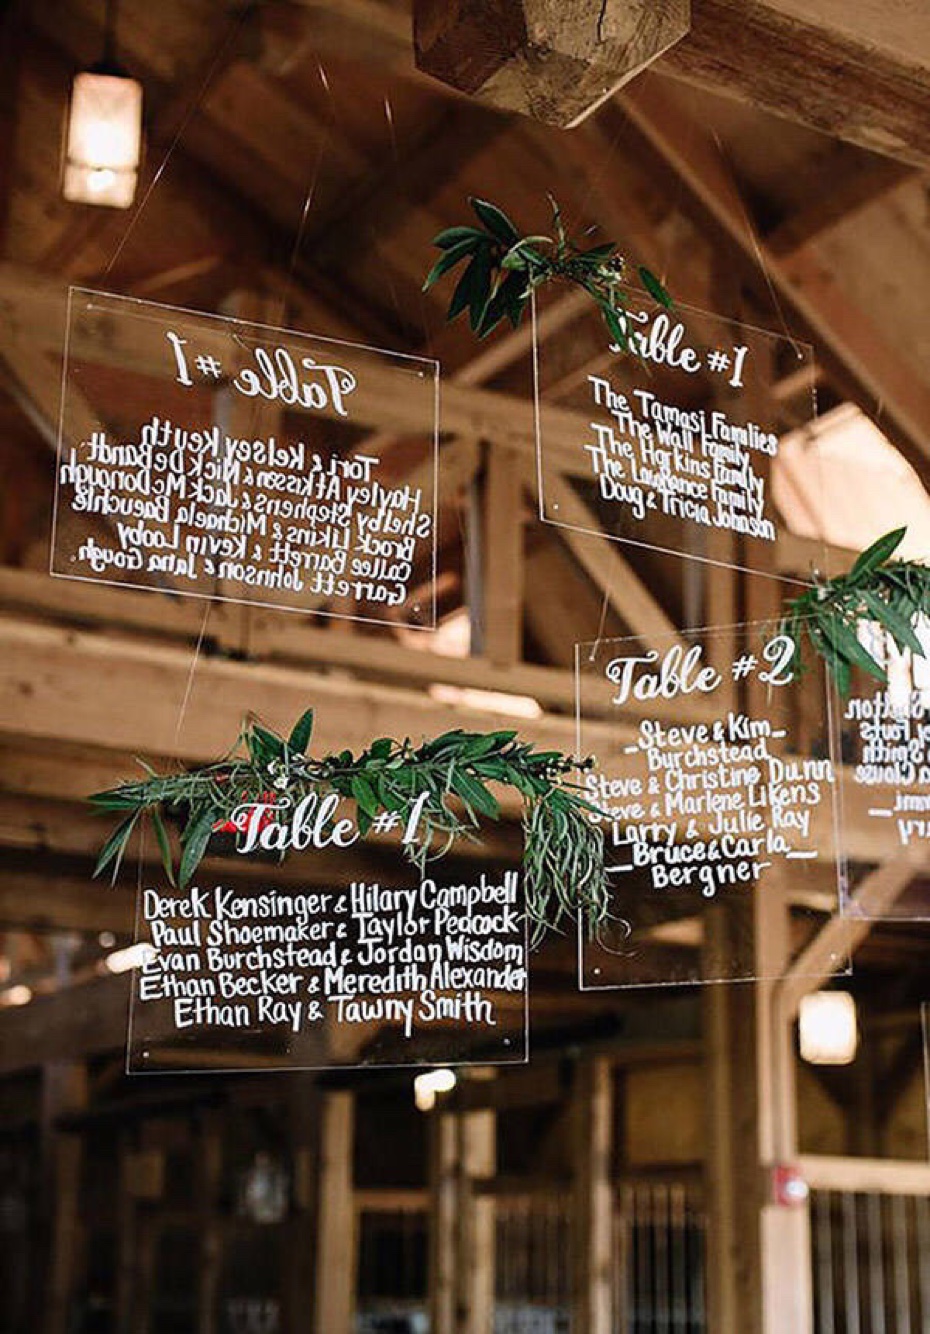 Table #1
Tori & Kelsey Keuth
Hayley Atkisson & Nick DeBandt
Shelby Stephens & Jack McDonough
Brock Likins & Michaela Baeuchle
Callee Barrett & Kevin Looby
Garrett Johnson & Jana Gough
Table #1
The Tamasi Families
The Wall Family
The Harkins Family
The Lawhance Family
Doug & Tricia Johnson
Table #2
Steve & Kim
Burchstead
Steve & Christine Dunn
Steve & Marlene Likens
Larry & Julie Ray
Bruce & Carla
Bergner
Table #1
Derek Kensinger & Hilary Campbell
Paul Shoemaker & Taylor Peacock
Evan Burchstead & Jordan Wisdom
Ethan Becker & Meredith Alexander
Ethan Ray & Tawny Smith
Smith